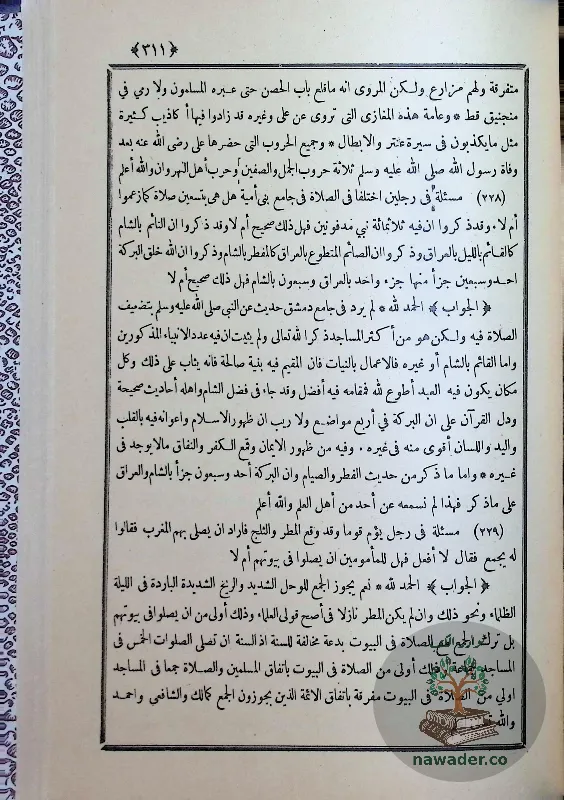 ﴿٣١١﴾
متفرقة ولهم مزارع ولكن المروى انه ماقلع باب الحصن حتى عبره المسلمون ولا رمي في
منجنيق قط * وعامة هذه المغازى التى تروى عن على وغيره قد زادوا فيها أكاذيب كثيرة
مثل مايكذبون فى سيرة عنتر والابطال * وجميع الحروب التى حضرها على رضى الله عنه بعد
وفاة رسول الله صلى الله عليه وسلم ثلاثة حروب الجمل والصفين وحرب أهل النهروان والله أعلم
(٢٢٨) مسئلة فى رجلين اختلفا فى الصلاة فى جامع بنى أمية هل هى بتسعين صلاة كما زعموا
أم لا وقد ذكروا ان فيه ثلاثمائة نبي مدفونين فهل ذلك صحيح أم لا وقد ذكروا ان النائم بالشام
كالقائم بالليل بالعراق وذكروا ان الصائم المتطوع بالعراق كالمفطر بالشام وذكروا ان الله خلق البركة
احد وسبعين جزأ منها جزء واحد بالعراق وسبعون بالشام فهل ذلك صحيح أم لا
﴿ الجواب ﴾ الحمد لله * لم يرد فى جامع دمشق حديث عن النبى صلى الله عليه وسلم بتضعيف
الصلاة فيه ولكن هو من أكثر المساجد ذكرا لله تعالى ولم يثبت ان فيه عدد الانبياء المذكورين
واما القائم بالشام أو غيره فالاعمال بالنيات فان المقيم فيه بنية صالحة فانه يثاب على ذلك وكل
مكان يكون فيه العبد أطوع لله فمقامه فيه أفضل وقد جاء فى فضل الشام واهله أحاديث صحيحة
ودل القرآن على ان البركة في أربع مواضع ولا ريب ان ظهور الاسلام واعوانه فيه بالقلب
واليد واللسان أقوى منه فى غيره . وفيه من ظهور الايمان وقمع الكفر والنفاق مالا يوجد فى
غيره * واما ما ذكر من حديث الفطر والصيام وان البركة أحد وسبعون جزأ بالشام والعراق
على ماذكر فهذا لم نسمعه عن أحد من أهل العلم والله أعلم
(٢٢٩) مسئلة فى رجل يؤم قوما وقد وقع المطر والثلج فاراد ان يصلى بهم المغرب فقالوا
له يجمع فقال لا أفعل فهل للمأمومين ان يصلوا فى بيوتهم أم لا
﴿ الجواب ﴾ الحمد لله * نعم يجوز الجمع للوحل الشديد والريح الشديدة الباردة فى الليلة
الظلماء ونحو ذلك وان لم يكن المطر نازلا فى أصح قولى العلماء وذلك أولى من ان يصلوا فى بيوتهم
بل ترك الجمع مع الصلاة فى البيوت بدعة مخالفة للسنة اذ السنة ان تصلى الصلوات الخمس فى
المساجد جماعة وذلك أولى من الصلاة فى البيوت باتفاق المسلمين والصلاة جمعا فى المساجد
اولي من الصلاة فى البيوت مفرقة باتفاق الائمة الذين يجوزون الجمع كمالك والشافعي واحمد
والله
nawader.co